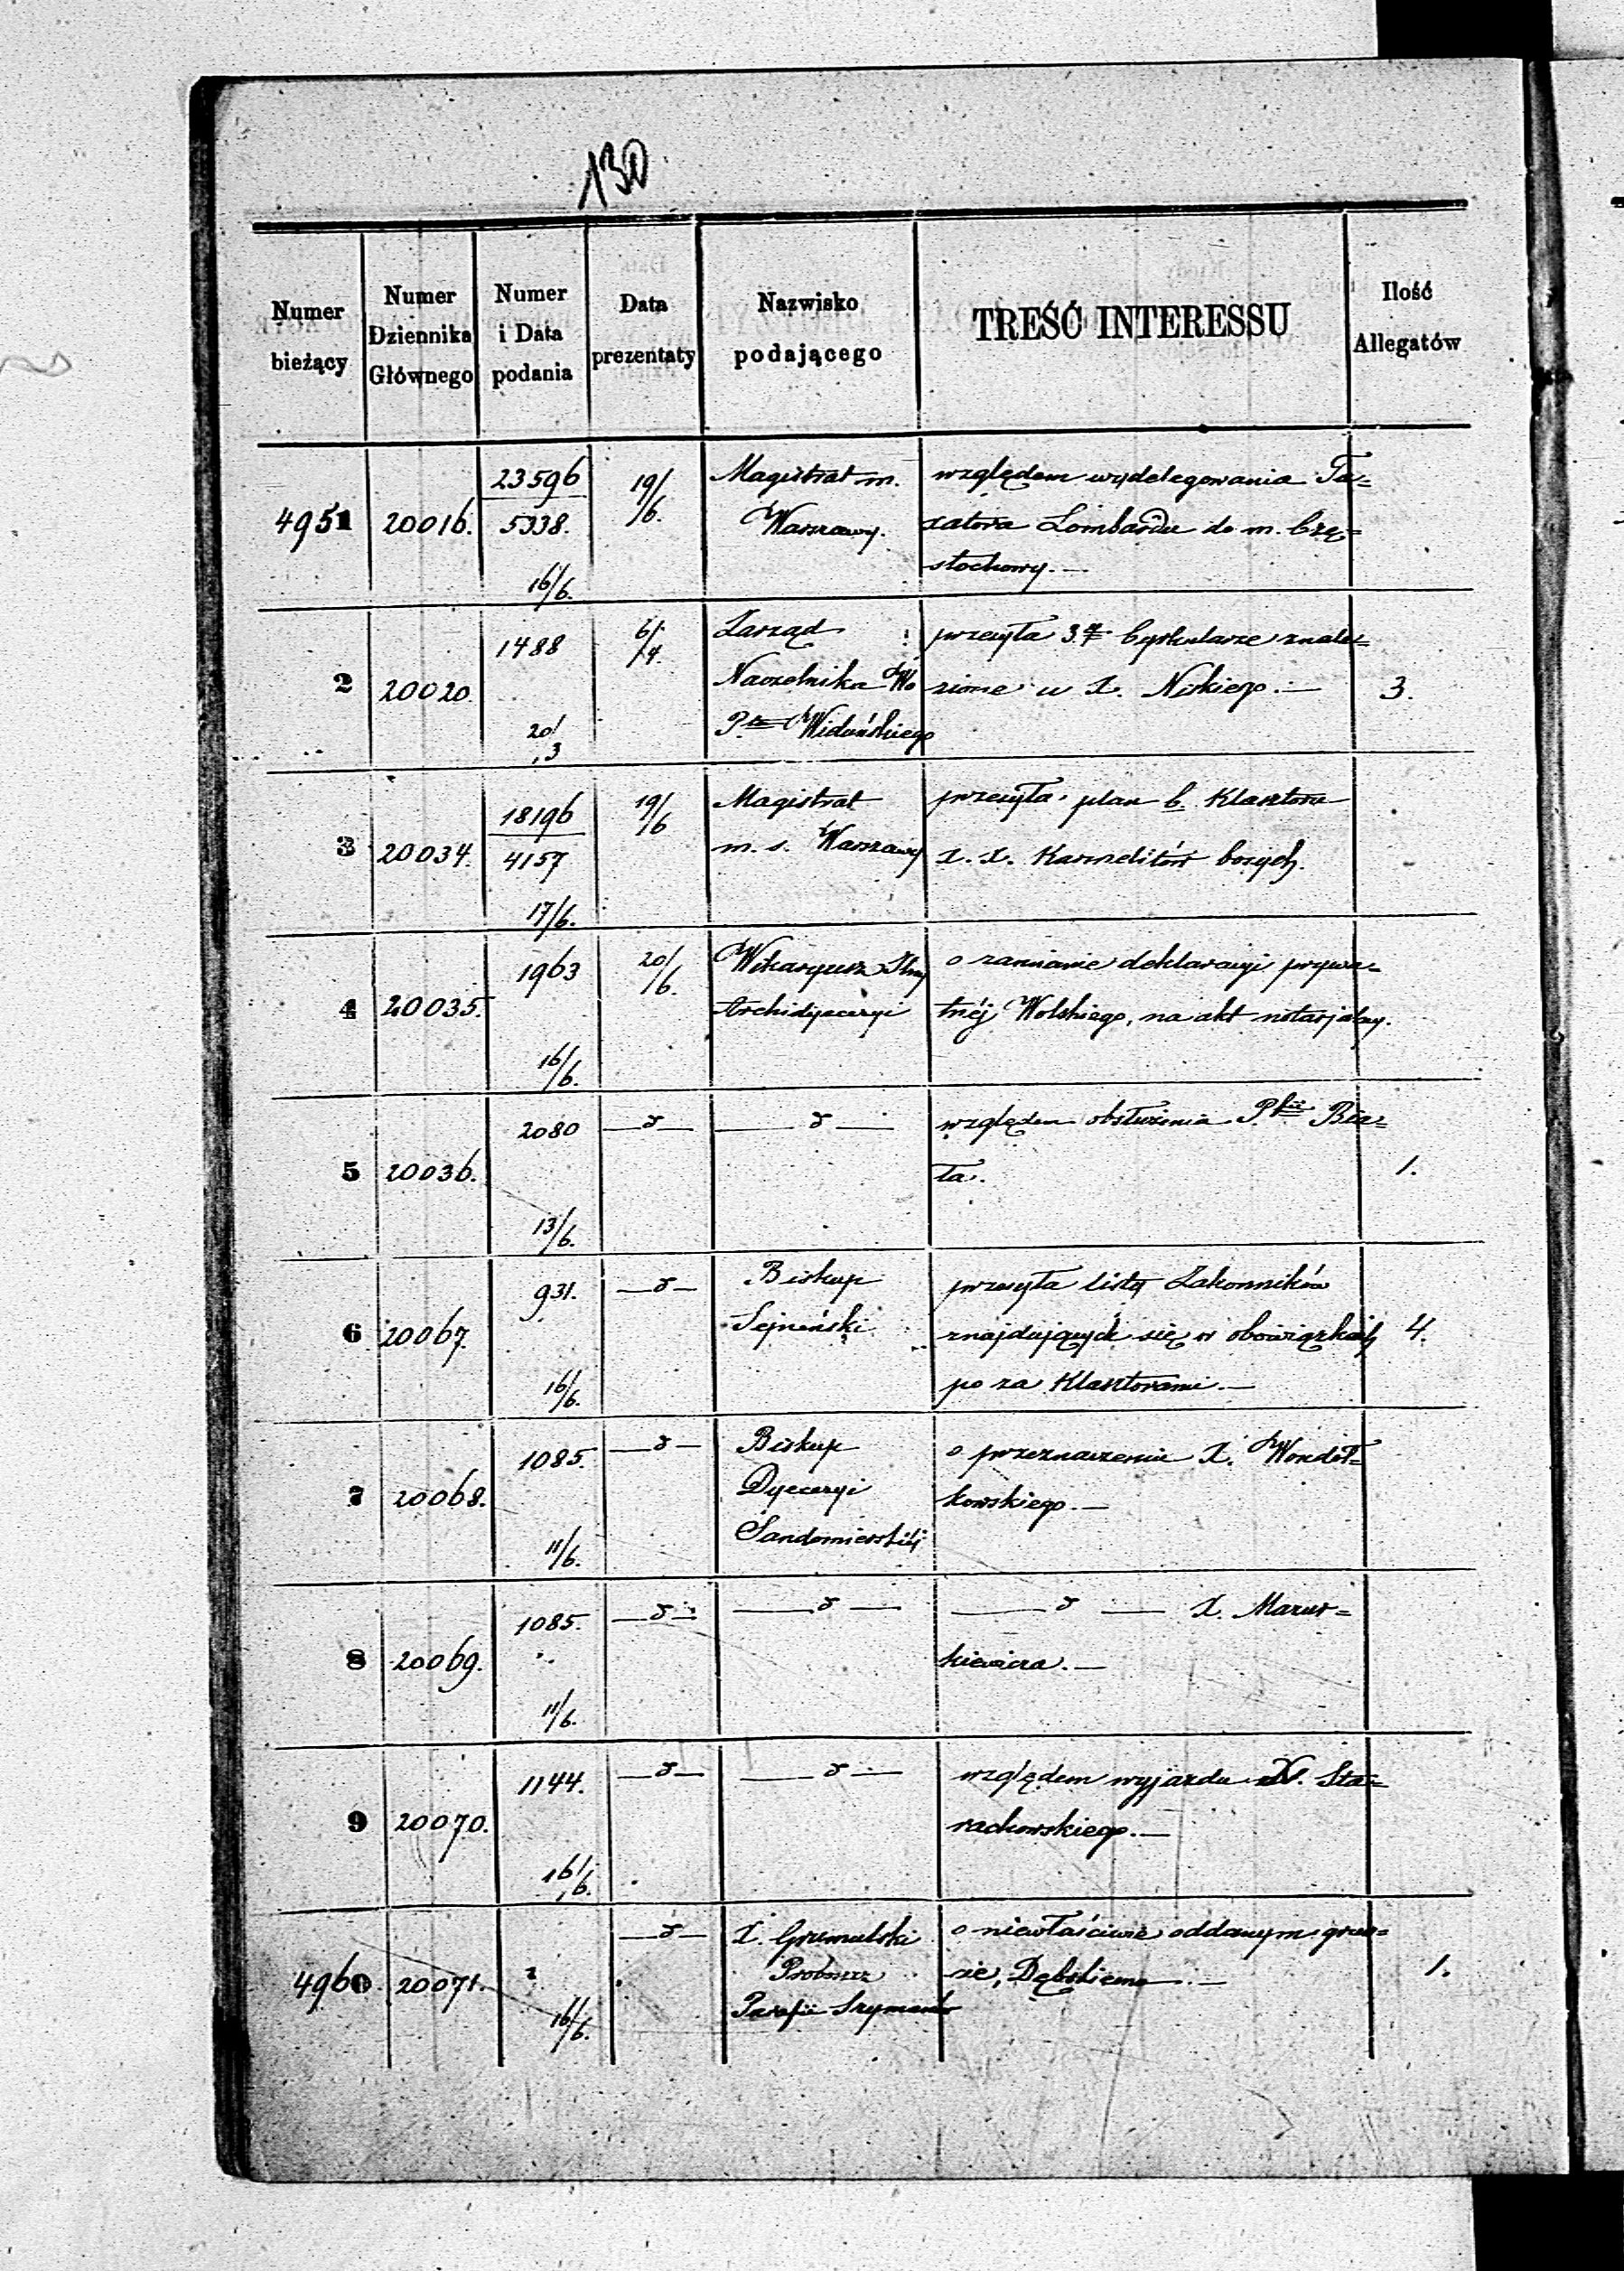 130
Numer bieżący | Numer Dziennika Głównego | Numer i Data podania | Data prezentaty | Nazwisko podającego | TREŚĆ INTERESSU | Ilość Allegatów
4951 | 20016. | 23596 / 5338. 16/6. | 19/6. | Magistrat m. | względem wydelegowania Ta=
Warszawy. | xatora Lombardu do m. Czę=
stochowy.—
2 | 20020. | 1488 20/3 | 6/4. | Zarząd | przesyła 3. Cyrkularze znale=
Naczelnika Wo | zione u X. Niskiego.— | 3.
Widuńskiego
3 | 20034. | 18196 / 4157 17/6. | 19/6 | Magistrat | przesyła plan b. Klasztoru
m. s. Warszawy | X. X. Karmelitów bosych.
4 | 20035. | 1963 16/6. | 20/6. | Wikaryusz Jlny | o zamianie deklaracyi prywa=
Archidyecezyi | tnéj Wolskiego, na akt notarjalny.
5 | 20036. | 2080 13/6. | —d— | —d— | względem obsłużenia P. Bia=
ła. | 1.
6 | 20067. | 931. 16/6. | —d— | Biskup | przesyła listę Zakonników
Sejneński | znajdujących się w obowiązkach | 4.
po za Klasztorami.—
7 | 20068. | 1085. 11/6. | —d— | Biskup | o przeznaczenie X. Wondoł=
Dyecezyi | kowskiego.—
Sandomierskiéj
8 | 20069. | 1085. 11/6. | —d— | —d— | —d— X. Mazur=
kiewicza.—
9 | 20070. | 1144. 16/6. | —d— | —d— | względem wyjazdu X. Sta=
rachowskiego.—
4960 | 20071. | 16/6. | —d— | X. | o niewłaściwie oddanym grun=
Proboszcz | cie, Dębskiemu.— | 1.
Parafii